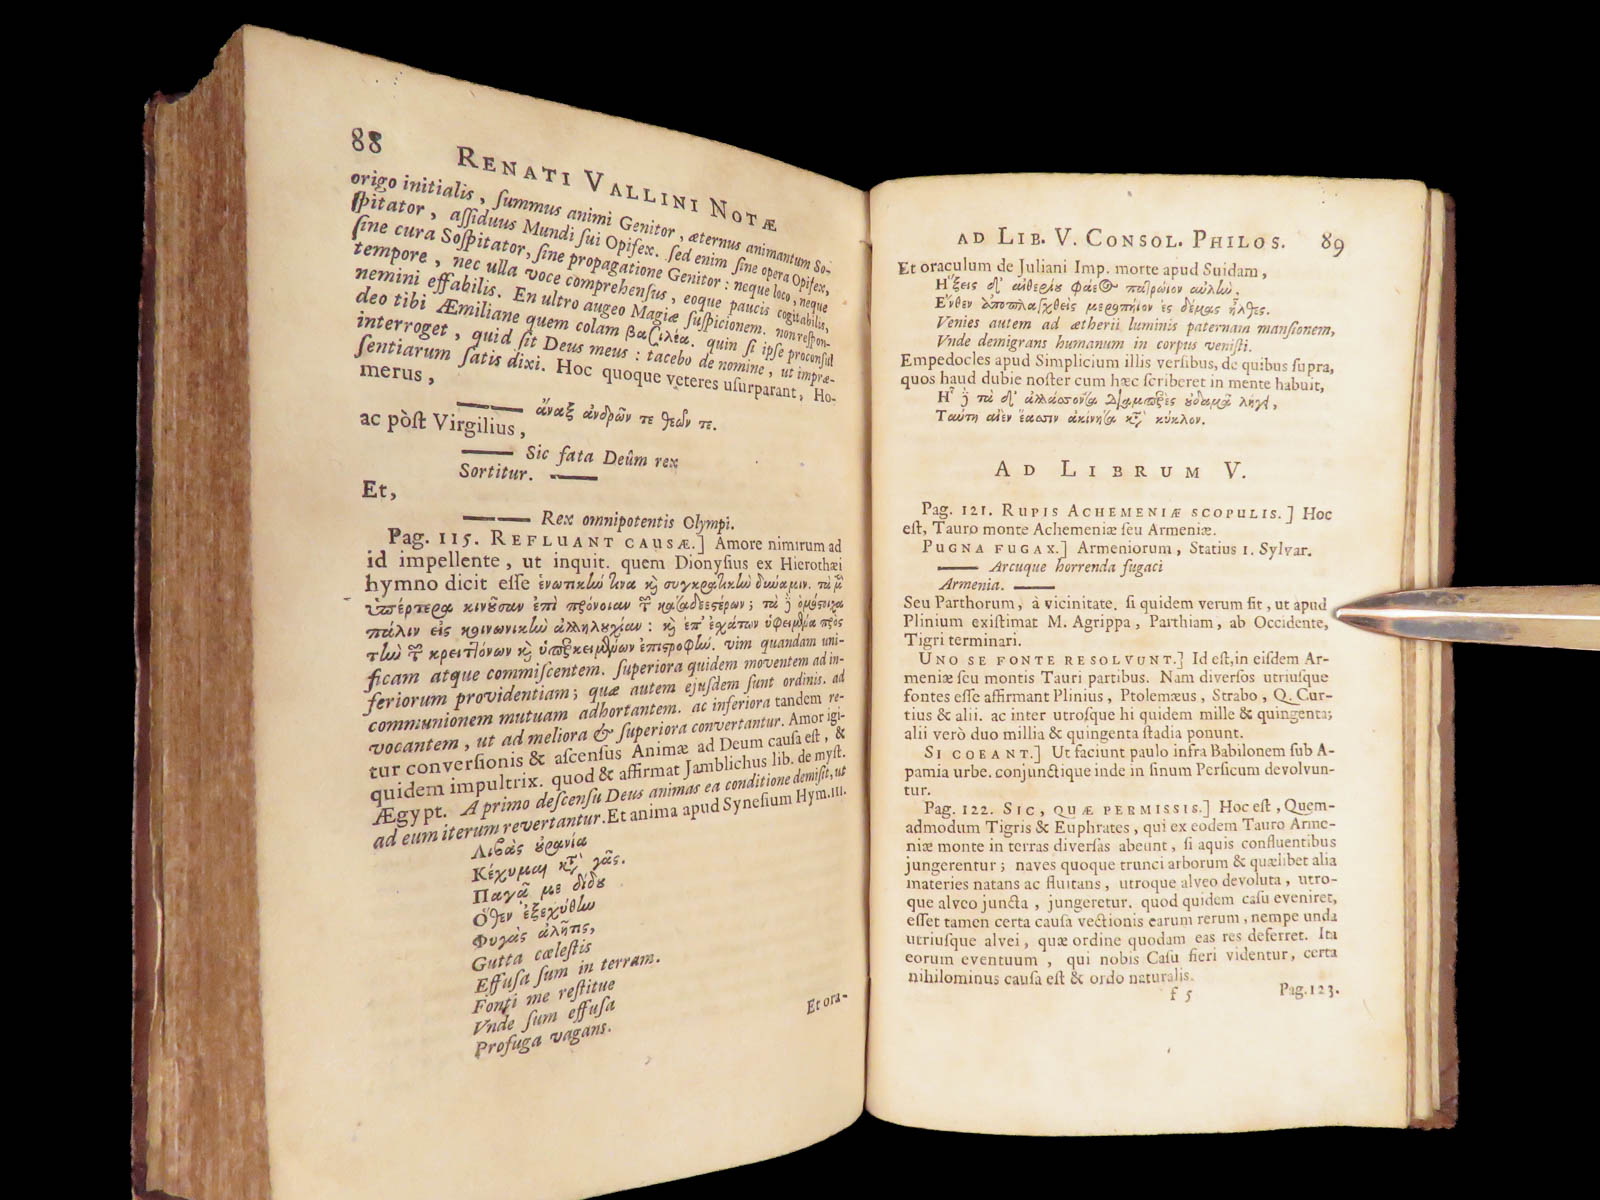 88 RENATI VALLINI NOTÆ
origo initialis, ſummus animi Genitor, æternus animantum So-
ſpitator, aſſiduus Mundi ſui Opifex. ſed enim ſine opera Opifex,
ſine cura Soſpitator, ſine propagatione Genitor: neque loco, neque
tempore, nec ulla voce comprehenſus, eoque paucis cogitabilis,
nemini effabilis. En ultro augeo Magiæ ſuſpicionem. non reſpon-
deo tibi Æmiliane quem colam βασιλέα. quin ſi ipſe proconſul
interroget, quid ſit Deus meus: tacebo de nomine, ut impræ-
ſentiarum ſatis dixi. Hoc quoque veteres uſurparant, Ho-
merus,
—— ἄναξ ἀνδρῶν τε θεῶν τε.
ac pòſt Virgilius,
—— Sic fata Deûm rex
Sortitur. ——
Et,
—— Rex omnipotentis Olympi.
Pag. 115. REFLUANT CAUSÆ.] Amore nimirum ad
id impellente, ut inquit. quem Dionyſius ex Hierothæi
hymno dicit eſſe ἑνωτικὼ τινα κỳ συγκρατικὼ δύναμιν. τὰ
ὑπέρτερα κινοῦσαν ἐπὶ πρόνοιαν καταδεεστέρων; τὰ ὁμόστοιχα
πάλιν εἰς κοινωνικὼ ἀλληλουχίαν: κỳ ἐπ' ἐχάτων ὑφειμένα πρὸς
τὼ κρειττόνων κỳ ὑπερκειμένων ἐπιστροφὼ. vim quandam uni-
ficam atque commiſcentem. ſuperiora quidem moventem ad in-
feriorum providentiam; quæ autem ejuſdem ſunt ordinis. ad
communionem mutuam adhortantem. ac inferiora tandem re-
vocantem, ut ad meliora & ſuperiora convertantur. Amor igi-
tur converſionis & aſcenſus Animæ ad Deum cauſa eſt, &
quidem impultrix. quod & affirmat Jamblichus lib. de myſt.
Ægypt. A primo deſcenſu Deus animas ea conditione demiſit, ut
ad eum iterum revertantur. Et anima apud Syneſium Hym. III.
Λιβὰς οὐρανία
Κέχυμαι κατὰ γᾶς.
Παγᾷ με δίδου
Ὅθεν ἐξεχύθω
Φυγὰς ἀλῆτις,
Gutta cœleſtis
Effuſa ſum in terram.
Fonti me reſtitue
Vnde ſum effuſa
Profuga vagans.
Et ora-
AD LIB. V. CONSOL. PHILOS. 89
Et oraculum de Juliani Imp. morte apud Suidam,
Ἥξεις δ' αἰθερίου φάεος πατρώιον αὐλὼ,
Ἔνθεν ἀποπλαγχθεὶς μεροπήιον ἐς δέμας ἦλθες.
Venies autem ad ætherii luminis paternam manſionem,
Vnde demigrans humanum in corpus veniſti.
Empedocles apud Simplicium illis verſibus, de quibus ſupra,
quos haud dubie noſter cum hæc ſcriberet in mente habuit,
Ἧι δὲ τὰ δι' ἀλλάσσοντα διαμπερὲς οὐδαμᾶ λήγει,
Ταύτη αἰὲν ἔασσιν ἀκίνητα κατὰ κύκλον.
AD LIBRUM V.
Pag. 121. RUPIS ACHEMENIÆ SCOPULIS.] Hoc
eſt, Tauro monte Achemeniæ ſeu Armeniæ.
PUGNA FUGAX.] Armeniorum, Statius 1. Sylvar.
—— Arcuque horrenda fugaci
Armenia. ——
Seu Parthorum, à vicinitate. ſi quidem verum ſit, ut apud
Plinium exiſtimat M. Agrippa, Parthiam, ab Occidente,
Tigri terminari.
UNO SE FONTE RESOLVUNT.] Id eſt, in eiſdem Ar-
meniæ ſeu montis Tauri partibus. Nam diverſos utriuſque
fontes eſſe affirmant Plinius, Ptolemæus, Strabo, Q. Cur-
tius & alii. ac inter utroſque hi quidem mille & quingenta;
alii verò duo millia & quingenta ſtadia ponunt.
SI COEANT.] Ut faciunt paulo infra Babilonem ſub A-
pamia urbe. conjunctique inde in ſinum Perſicum devolvun-
tur.
Pag. 122. SIC, QUÆ PERMISSIS.] Hoc eſt, Quem-
admodum Tigris & Euphrates, qui ex eodem Tauro Arme-
niæ monte in terras diverſas abeunt, ſi aquis confluentibus
jungerentur; naves quoque trunci arborum & quælibet alia
materies natans ac fluitans, utroque alveo devoluta, utro-
que alveo juncta, jungeretur. quod quidem caſu eveniret,
eſſet tamen certa cauſa vectionis earum rerum, nempe unda
utriuſque alvei, quæ ordine quodam eas res deferret. Ita
eorum eventuum, qui nobis Caſu fieri videntur, certa
nihilominus cauſa eſt & ordo naturalis.
f 5 Pag. 123.